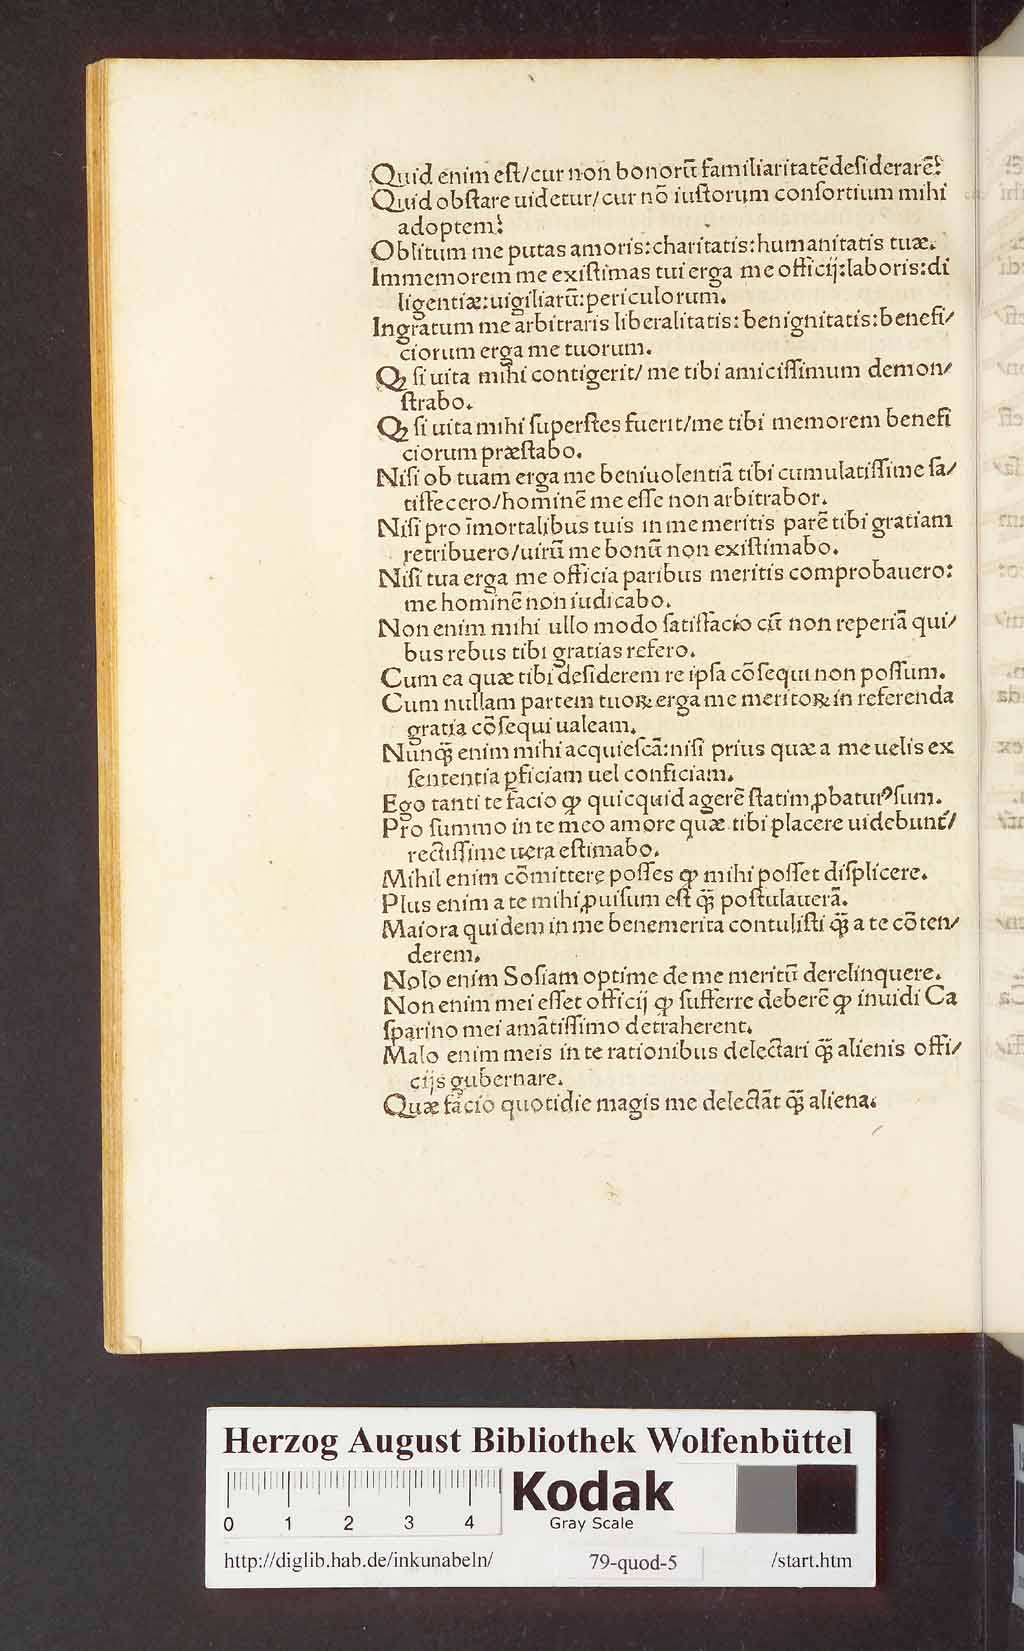 Quid enim eſt/cur non bonorū familiaritatē deſiderarē?
Quid obſtare uidetur/cur nō iuſtorum conſortium mihi
adoptem?
Oblitum me putas amoris:charitatis:humanitatis tuæ.
Immemorem me exiſtimas tui erga me officij:laboris:di
ligentiæ:uigiliarū:periculorum.
Ingratum me arbitraris liberalitatis:benignitatis:benefi/
ciorum erga me tuorum.
Qꝫ ſi uita mihi contigerit/me tibi amiciſſimum demon/
ſtrabo.
Qꝫ ſi uita mihi ſuperſtes fuerit/me tibi memorem benefi
ciorum præſtabo.
Niſi ob tuam erga me beniuolentiā tibi cumulatiſſime ſa/
tiſfecero/hominē me eſſe non arbitrabor.
Niſi pro īmortalibus tuis in me meritis parē tibi gratiam
retribuero/uirū me bonū non exiſtimabo.
Niſi tua erga me officia paribus meritis comprobauero:
me hominē non iudicabo.
Non enim mihi ullo modo ſatiſfacio cū non reperiā qui/
bus rebus tibi gratias refero.
Cum ea quæ tibi deſiderem re ipſa cōſequi non poſſum.
Cum nullam partem tuoꝝ erga me meritoꝝ in referenda
gratia cōſequi ualeam.
Nunꝗ̄ enim mihi acquieſcā:niſi prius quæ a me uelis ex
ſententia ꝑficiam uel conficiam.
Ego tanti te facio ꝙ quicquid agerē ſtatim ꝓbaturꝰ ſum.
Pro ſummo in te meo amore quæ tibi placere uidebunt̄/
rectiſſime uera eſtimabo.
Mihil enim cōmittere poſſes ꝙ mihi poſſet diſplicere.
Plus enim a te mihi ꝓuiſum eſt ꝗ̄ poſtulauerā.
Maiora quidem in me benemerita contuliſti ꝗ̄ a te cōten/
derem.
Nolo enim Soſiam optime de me meritū derelinquere.
Non enim mei eſſet officij ꝙ ſufferre deberē ꝙ inuidi Ca
ſparino mei amātiſſimo detraherent.
Malo enim meis in te rationibus delectari ꝗ̄ alienis offi/
cijs gubernare.
Quæ facio quotidie magis me delectāt ꝗ̄ aliena.
Herzog August Bibliothek Wolfenbüttel
0 1 2 3 4
Kodak
Gray Scale
http://diglib.hab.de/inkunabeln/ 79-quod-5 /start.htm